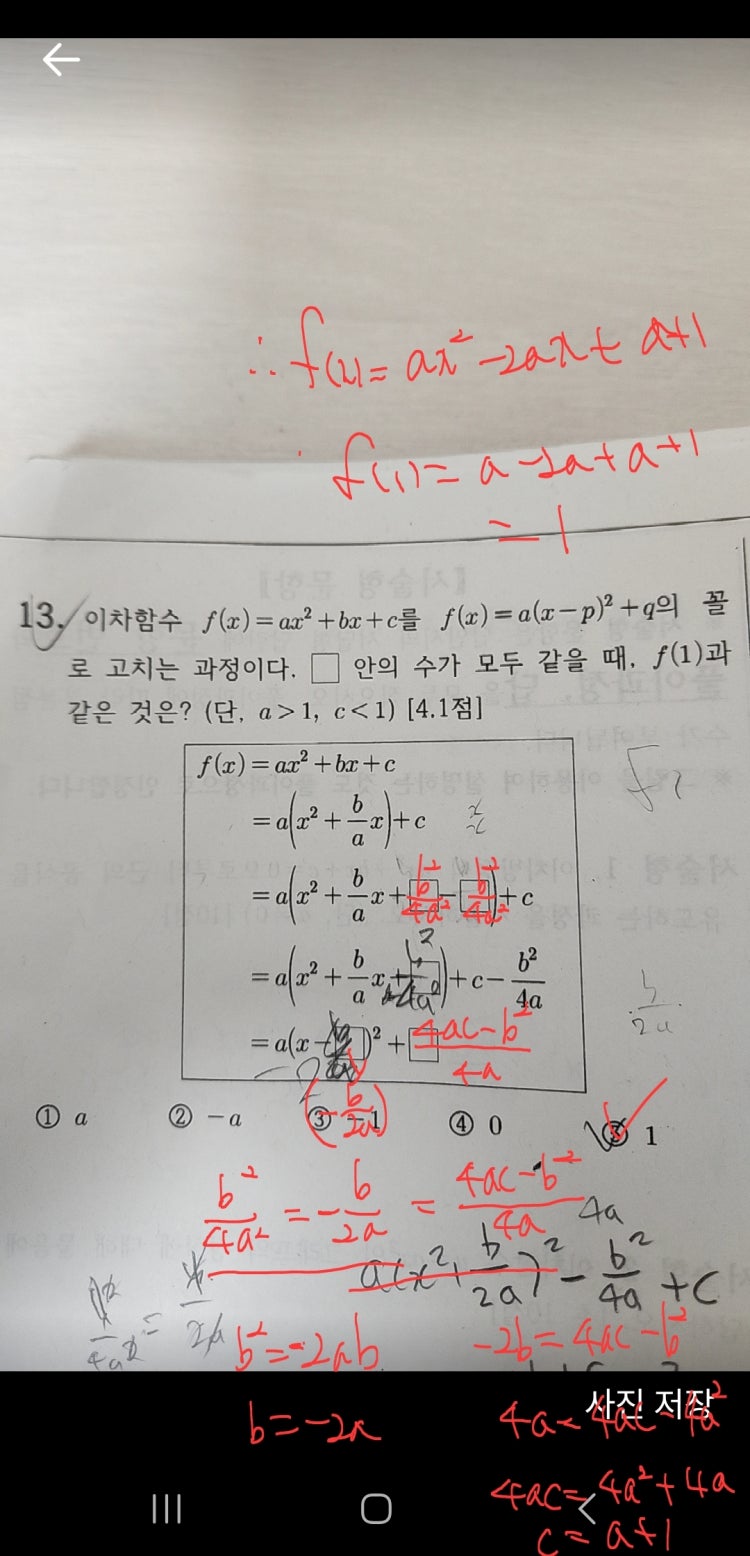 ∴ f(x) = ax² - 2ax + a+1
f(1) = a - 2a + a + 1
= 1
13. 이차함수 f(x)=ax²+bx+c를 f(x)=a(x-p)²+q의 꼴
로 고치는 과정이다. □ 안의 수가 모두 같을 때, f(1)과
같은 것은? (단, a>1, c<1) [4.1점]
f(x)=ax²+bx+c
=a(x²+b/a x)+c
=a(x²+b/a x+b²/4a²-b²/4a²)+c
=a(x²+b/a x+b²/4a²)+c-b²/4a
=a(x-□)²+□ 4ac-b²/4a
(-b/2a)
b/2a
① a ② -a ③ -1 ④ 0 ⑤ 1
b²/4a² = -b/2a = 4ac-b²/4a
4a
a(x²+b/2a)² - b²/4a + c
b² = -2ab -2b = 4ac-b²
사진 저장
b = -2a 4a = 4ac-4a²
4ac = 4a²+4a
c = a+1